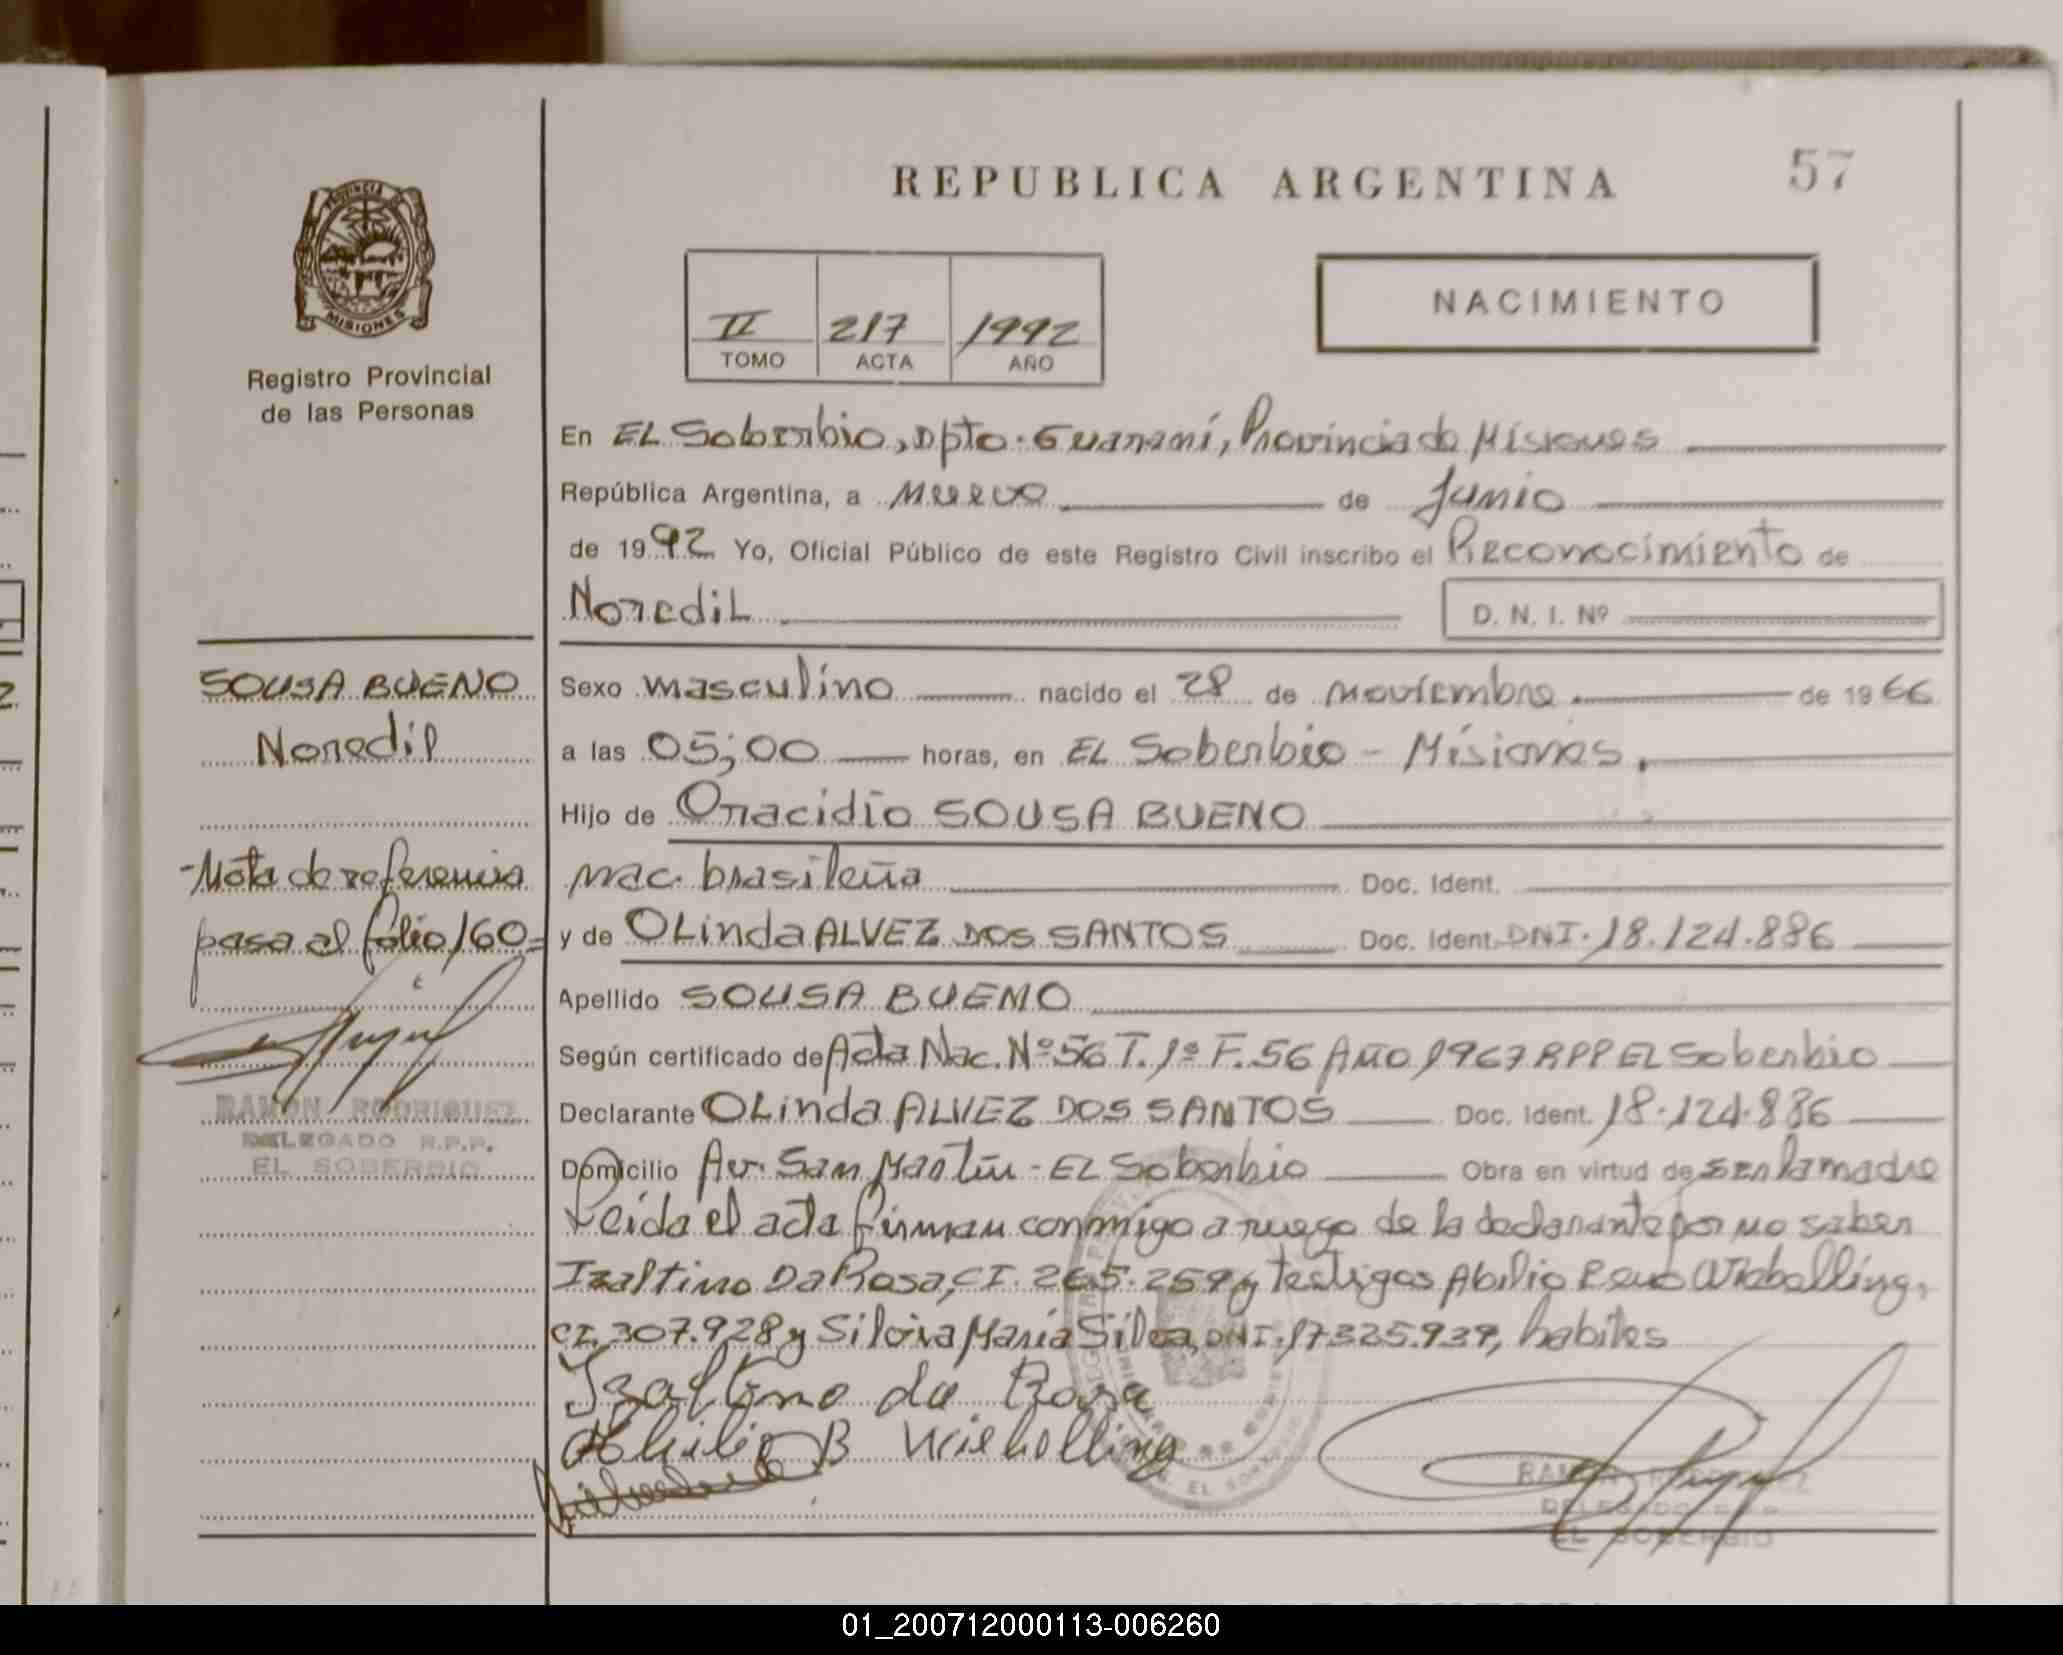 REPUBLICA ARGENTINA
57
PROVINCIA DE
MISIONES
Registro Provincial
de las Personas
II 217 1992
TOMO ACTA AÑO
NACIMIENTO
En EL Soberbio, Dpto. Guaraní, Provincia de Misiones
República Argentina, a Nueve de Junio
de 1992 Yo, Oficial Público de este Registro Civil inscribo el Reconocimiento de
Noredil D. N. I. Nº
SOUSA BUENO
Noredil
Sexo masculino nacido el 28 de noviembre. de 1966
a las 05;00 horas, en EL Soberbio - Misiones.
Hijo de Oracidio SOUSA BUENO
nac. brasileña Doc. Ident.
y de OLinda ALVEZ DOS SANTOS Doc. Ident. DNI. 18.124.886
-Nota de referencia
pasa al folio 160=
Apellido SOUSA BUENO
Según certificado de Acta Nac. Nº 56 T. 1º F. 56 Año 1967 RPP EL Soberbio
Declarante OLinda ALVEZ DOS SANTOS Doc. Ident. 18.124.886
Domicilio Av. San Martín - EL Soberbio Obra en virtud de ser la madre
Leída el acta firman conmigo a ruego de la declarante por no saber
Izaltino Da Rosa, CI. 265.259 y testigos Abilio
CI. 307.928 y Silvira María Silva, DNI. 17325.939, habiles
RAMON RODRIGUEZ
DELEGADO R.P.P.
EL SOBERBIO
Izaltino da Rosa
Abilio B Wiebolling
RAMON RODRIGUEZ
DELEGADO R.P.P.
EL SOBERBIO
01_200712000113-006260